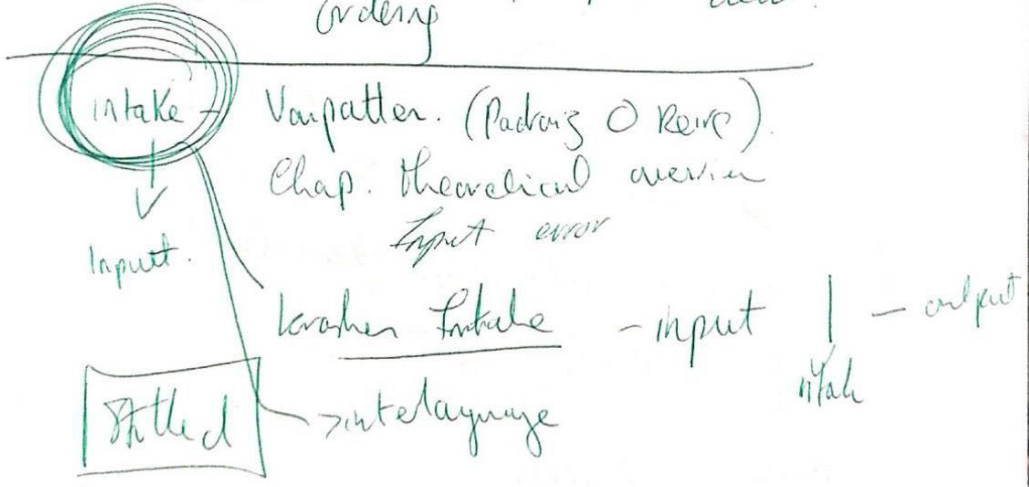 ordering
intake - Vanpatten. (Padraig O Reire).
Chap. theoretical overview
Input error
Input.
krashen Intake - input | - output
intake
>interlaguage